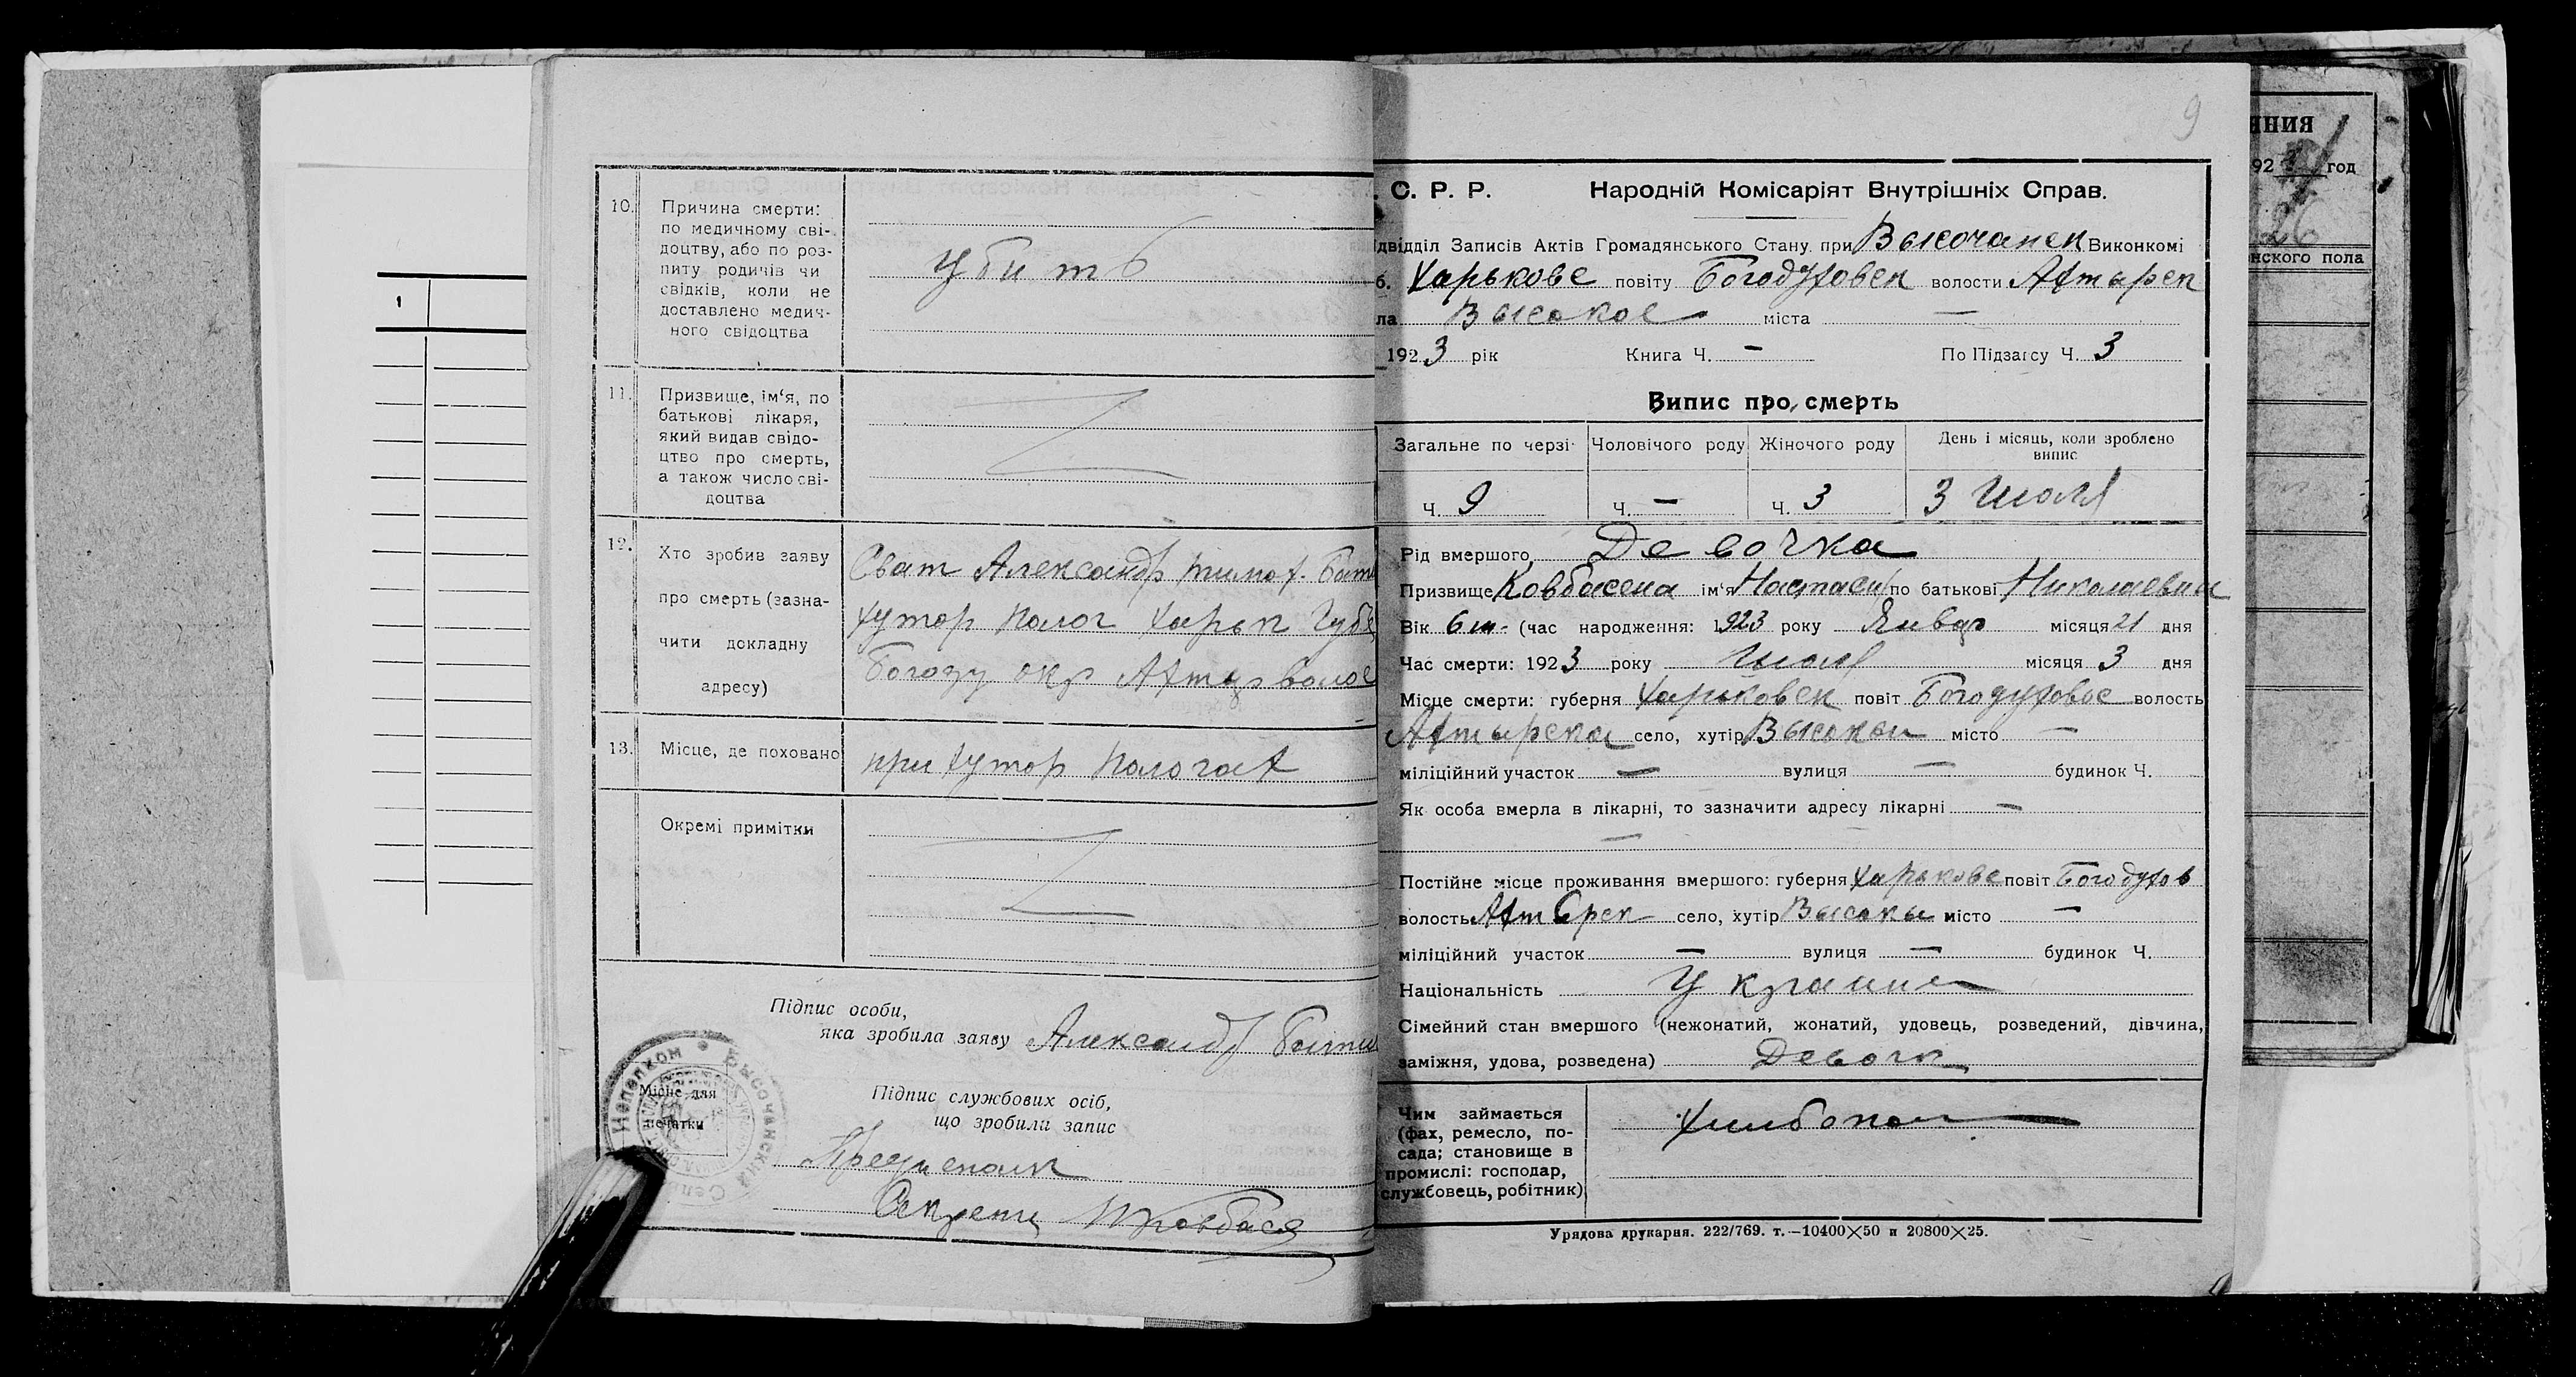 10. Причина смерти:
по медичному сві-
доцтву, або по роз-
питу родичів чи
свідків, коли не
доставлено медич-
ного свідоцтва
Убитъ
11. Призвище, ім‘я, по
батькові лікаря,
який видав свідо-
цтво про смерть,
а також число сві-
доцтва
12. Хто зробив заяву
про смерть (зазна-
чити докладну
адресу)
Сват Александр
хутор Полог Харьк Губ
окр волос
13. Місце, де поховано
при хутор Пологах
Окремі примітки
Підпис особи,
яка зробила заяву Александр
Місце для
печатки
Підпис службових осіб,
що зробили запис
Секрет
1
9
. С. Р. Р. Народній Комісаріят Внутрішніх Справ.
двідділ Записів Актів Громадянського Стану при Высочанск Виконкомі
б. Харькове повіту Богодуховск волости Ахтырск
ла Высокое міста —
1923 рік Книга Ч. — По Підзагсу Ч. 3
Випис про смерть
Загальне по черзі Чоловічого роду Жіночого роду День і місяць, коли зроблено
випис
Ч. 9 Ч. — Ч. 3 3 Июля
Рід вмершого Девочка
Призвище Ковбасена ім‘я Настаси по батькові Николаевна
Вік 6 м. (час народження: 1923 року Январ місяця 21 дня
Час смерти: 1923 року Июля місяця 3 дня
Місце смерти: губерня Харьковск повіт Богодуховс волость
Ахтырска село, хутір місто —
міліційний участок — вулиця — будинок Ч.
Як особа вмерла в лікарні, то зазначити адресу лікарні —
—
Постійне місце проживання вмершого: губерня Харькове повіт Богодухов
волость Ахтырск село, хутір місто —
міліційний участок — вулиця — будинок Ч.
Національність Украине
Сімейний стан вмершого (нежонатий, жонатий, удовець, розведений, дівчина,
заміжня, удова, розведена) Девочк
Чим займається
(фах, ремесло, по-
сада; становище в
промислі: господар,
службовець, робітник)
Урядова друкарня. 222/769. т.—10400×50 и 20800×25.
ния
92 год
26
нского пола